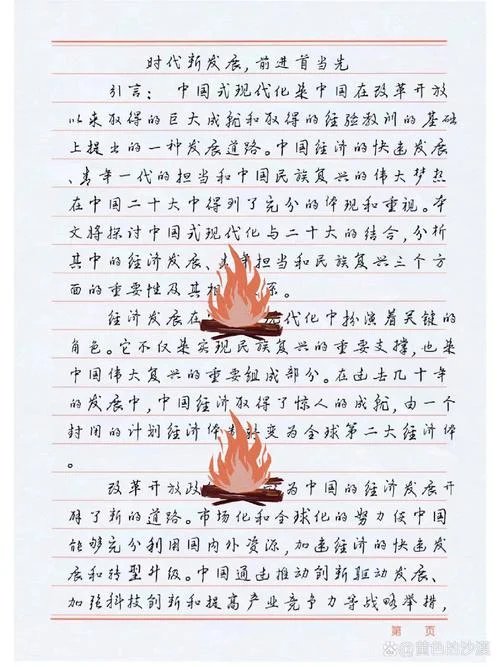 时代新发展,前进首当先
引言: 中国式现代化是中国在改革开放
以来取得的巨大成就和取得的经验教训的基础
上提出的一种发展道路。中国经济的快速发展
、青年一代的担当和中国民族复兴的伟大梦想
在中国二十大中得到了充分的体现和重视。本
文将探讨中国式现代化与二十大的结合,分析
其中的经济发展、年担当和民族复兴三个方
面的重要性及其相系。
经济发展在现代化中扮演着关键的
角色。它不仅是实现民族复兴的重要支撑,也是
中国伟大复兴的重要组成部分。在过去几十年
的发展中,中国经济取得了惊人的成就,由一个
封闭的计划经济体制转变为全球第二大经济体
。
改革开放政为中国的经济发展开
辟了新的道路。市场化和全球化的努力使中国
能够充分利用国内外资源,加速经济的快速发
展和转型升级。中国通过推动创新驱动发展、
加强科技创新和提高产业竞争力等战略举措,
第 页
@黄色的沙漠